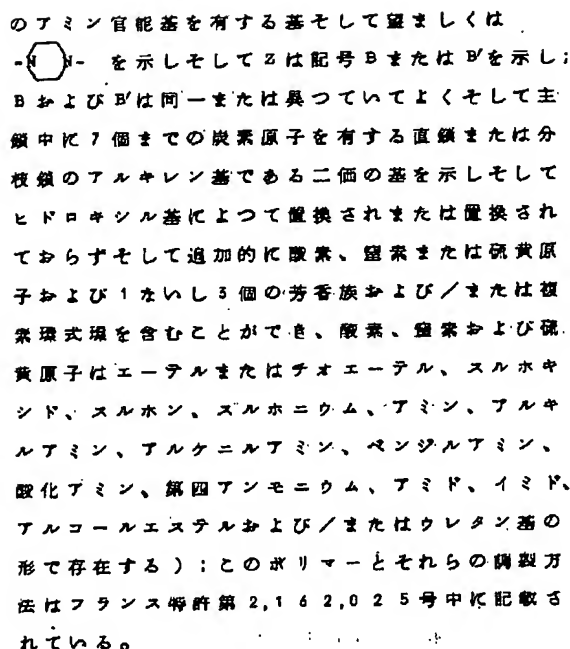 のアミン官能基を有する基そして望ましくは
-N N- を示しそしてZは記号BまたはB'を示し;
BおよびB'は同一または異つていてよくそして主
鎖中に7個までの炭素原子を有する直鎖または分
枝鎖のアルキレン基である二価の基を示しそして
ヒドロキシル基によつて置換されまたは置換され
ておらずそして追加的に酸素、窒素または硫黄原
子および1ないし3個の芳香族および/または複
素環式環を含むことができ、酸素、窒素および硫
黄原子はエーテルまたはチオエーテル、スルホキ
シド、スルホン、スルホニウム、アミン、アルキ
ルアミン、アルケニルアミン、ベンジルアミン、
酸化アミン、第四アンモニウム、アミド、イミド、
アルコールエステルおよび/またはウレタン基の
形で存在する):このポリマーとそれらの調製方
法はフランス特許第2,162,025号中に記載さ
れている。